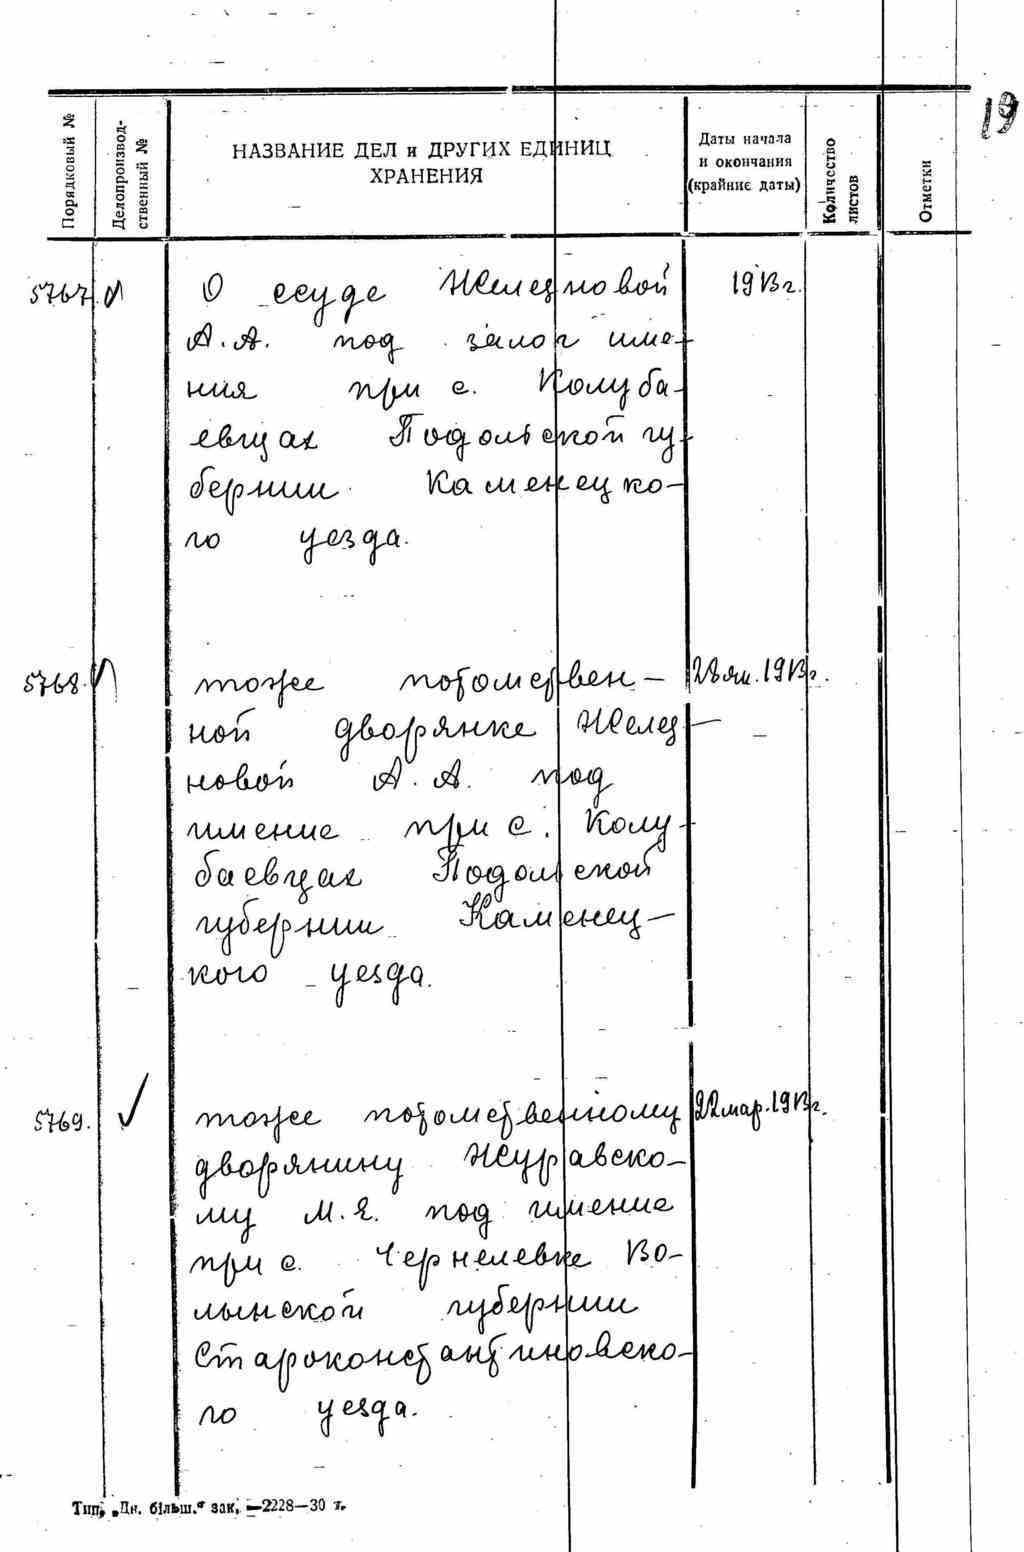 19
Порядковый №
Делопроизвод-
ственный №
НАЗВАНИЕ ДЕЛ и ДРУГИХ ЕДИНИЦ
ХРАНЕНИЯ
Даты начала
и окончания
(крайние даты)
Количество
листов
Отметки
5767. О ссуде Железновой 1913г.
А.А. под залог име-
ния при с. Колуба-
евцах Подольской гу-
бернии Каменецко-
го уезда.
5768. тоже потомствен- 28 ян. 1913г.
ной дворянке Желез-
новой А. А. под
имение при с. Колу-
баевцах Подольской
губернии Каменец-
кого уезда.
5769. тоже потомственному 22 мар. 1913г.
дворянину Журавско-
му М.Я. под имение
при с. Чернелевке Во-
лынской губернии
Староконстантиновско-
го уезда.
Тип. „Дн. більш.“ зак. —2228—30 т.